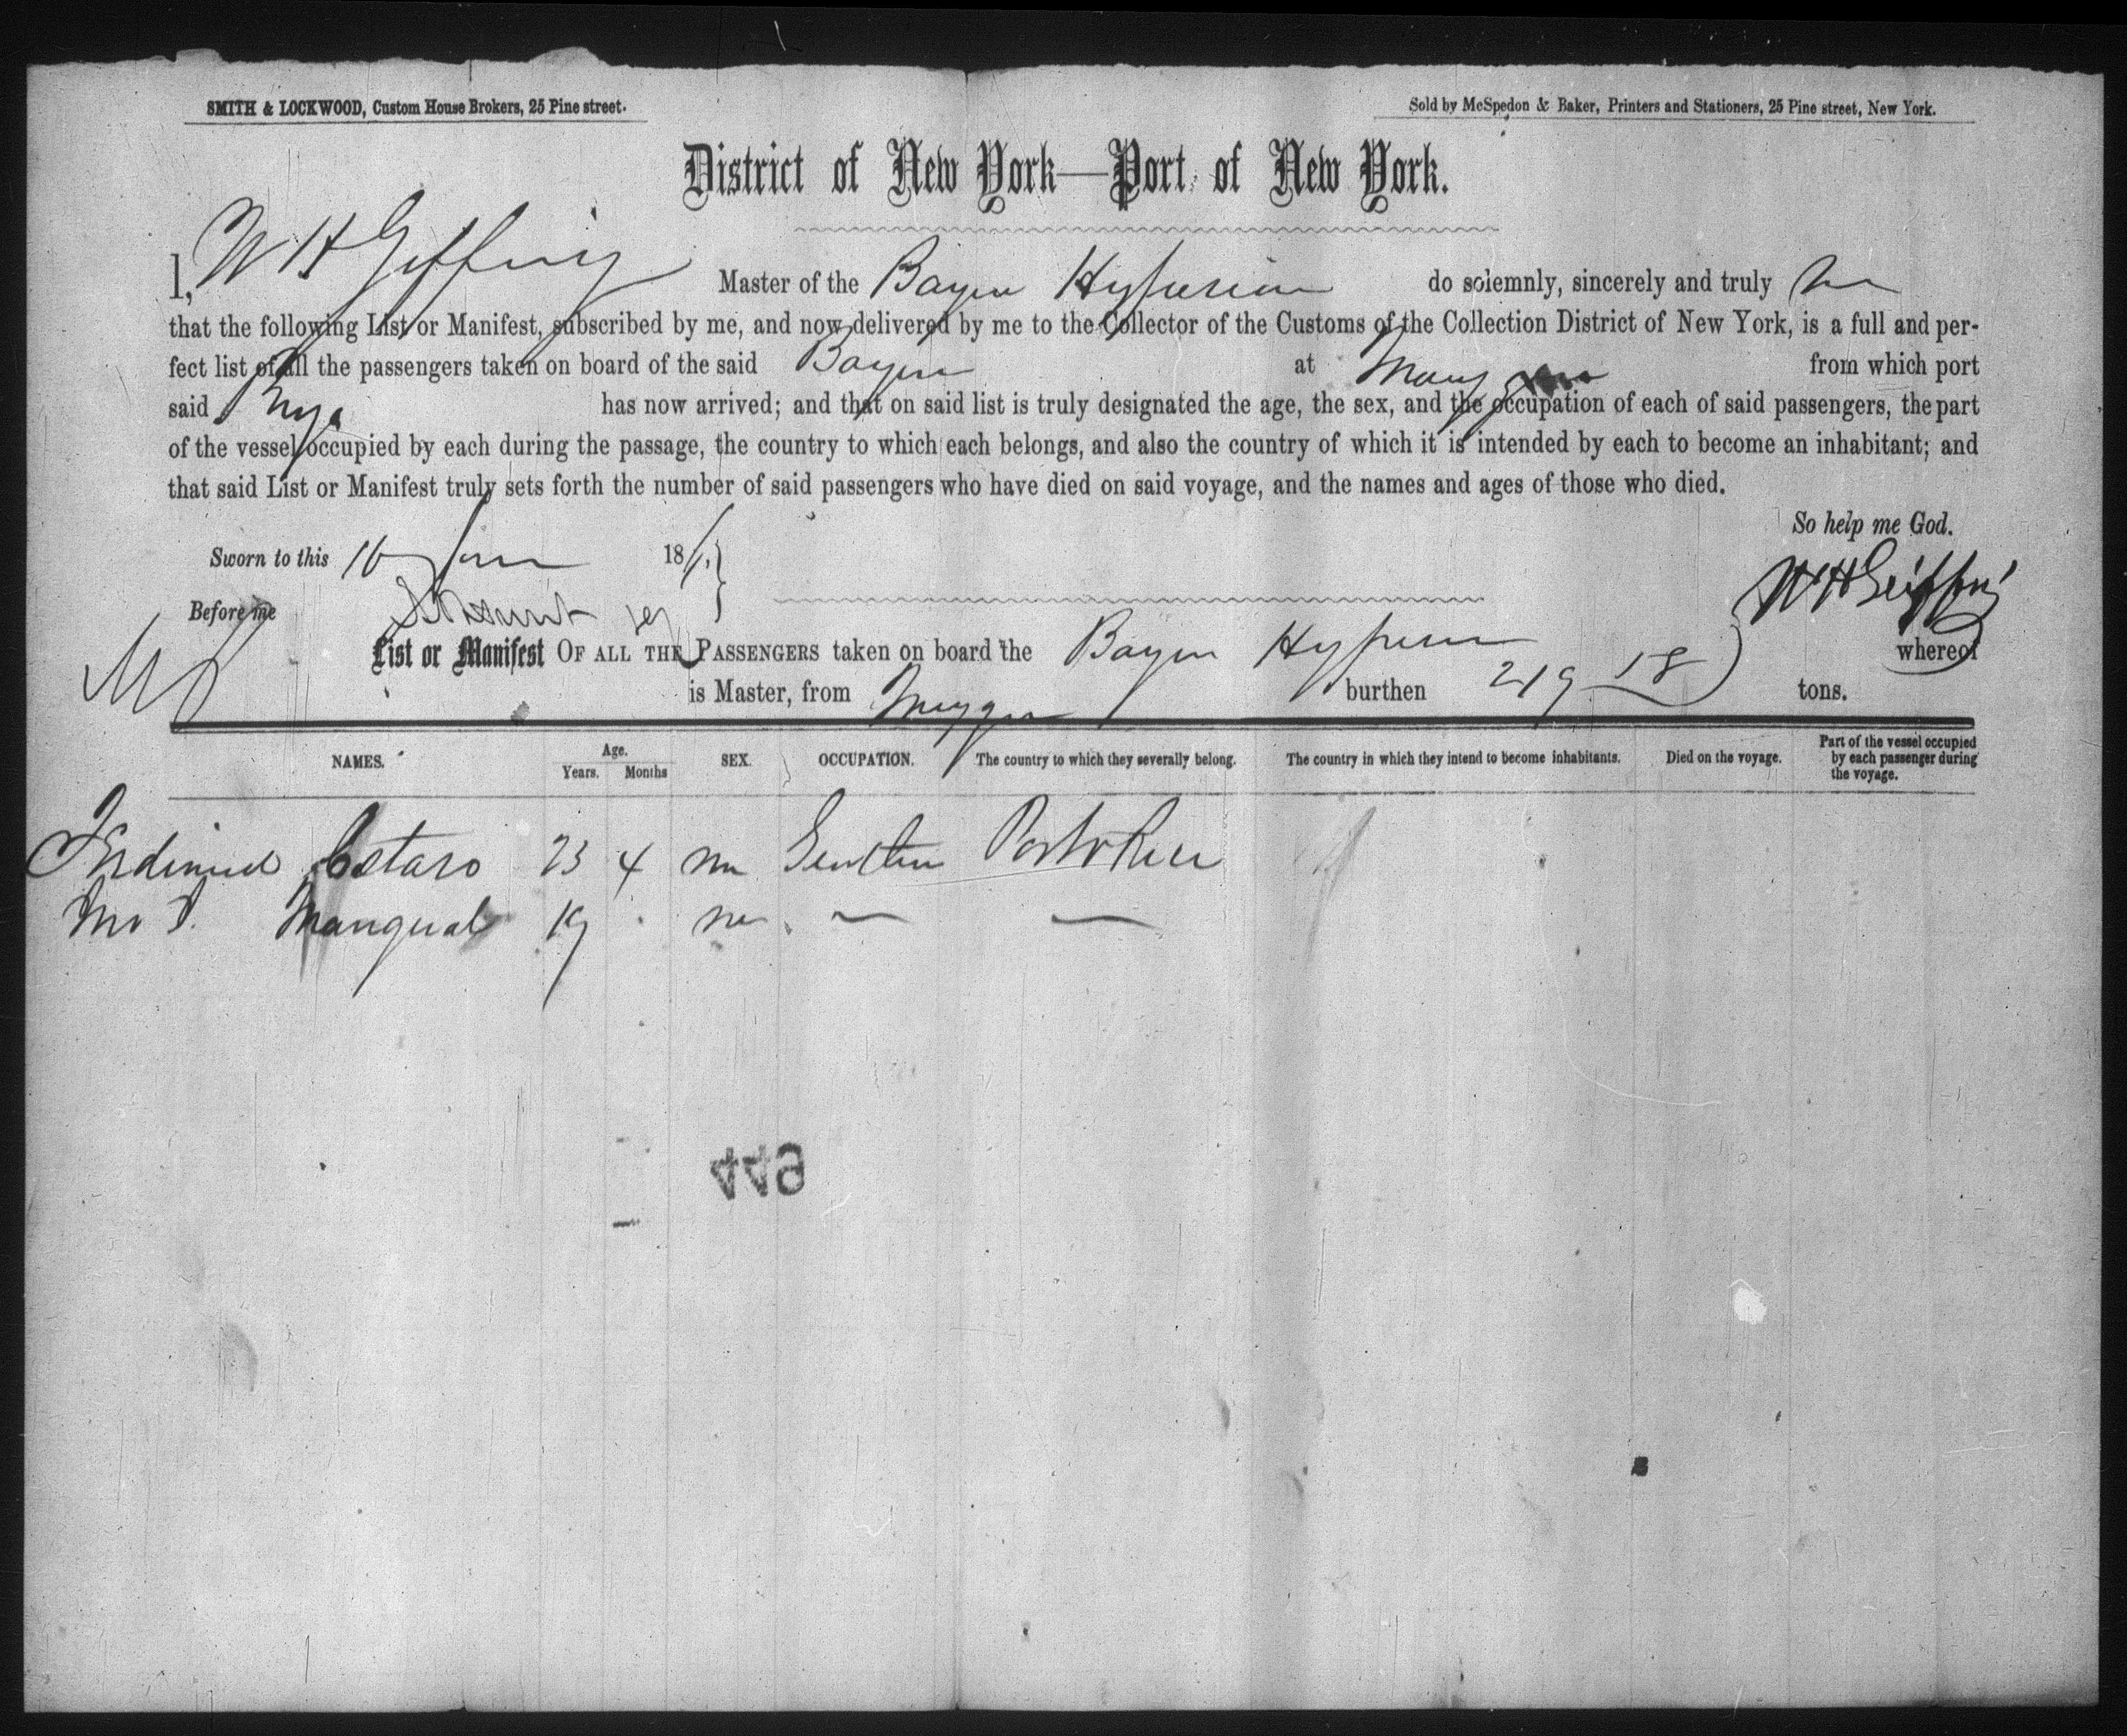 SMITH & LOCKWOOD, Custom House Brokers, 25 Pine street.
Sold by McSpedon & Baker, Printers and Stationers, 25 Pine street, New York.
District of New York—Port of New York.
I, W H Master of the Hyperion do solemnly, sincerely and truly
that the following List or Manifest, subscribed by me, and now delivered by me to the Collector of the Customs of the Collection District of New York, is a full and per-
fect list of all the passengers taken on board of the said at from which port
said has now arrived; and that on said list is truly designated the age, the sex, and the occupation of each of said passengers, the part
of the vessel occupied by each during the passage, the country to which each belongs, and also the country of which it is intended by each to become an inhabitant; and
that said List or Manifest truly sets forth the number of said passengers who have died on said voyage, and the names and ages of those who died.
So help me God.
Sworn to this 18
W H
Before me
List or Manifest OF ALL THE PASSENGERS taken on board the whereof
is Master, from burthen 219 tons.
NAMES. Age. Years. Months SEX. OCCUPATION. The country to which they severally belong. The country in which they intend to become inhabitants. Died on the voyage. Part of the vessel occupied by each passenger during the voyage.
23 4 m Porto Rico
Mangual 19 m — —
449